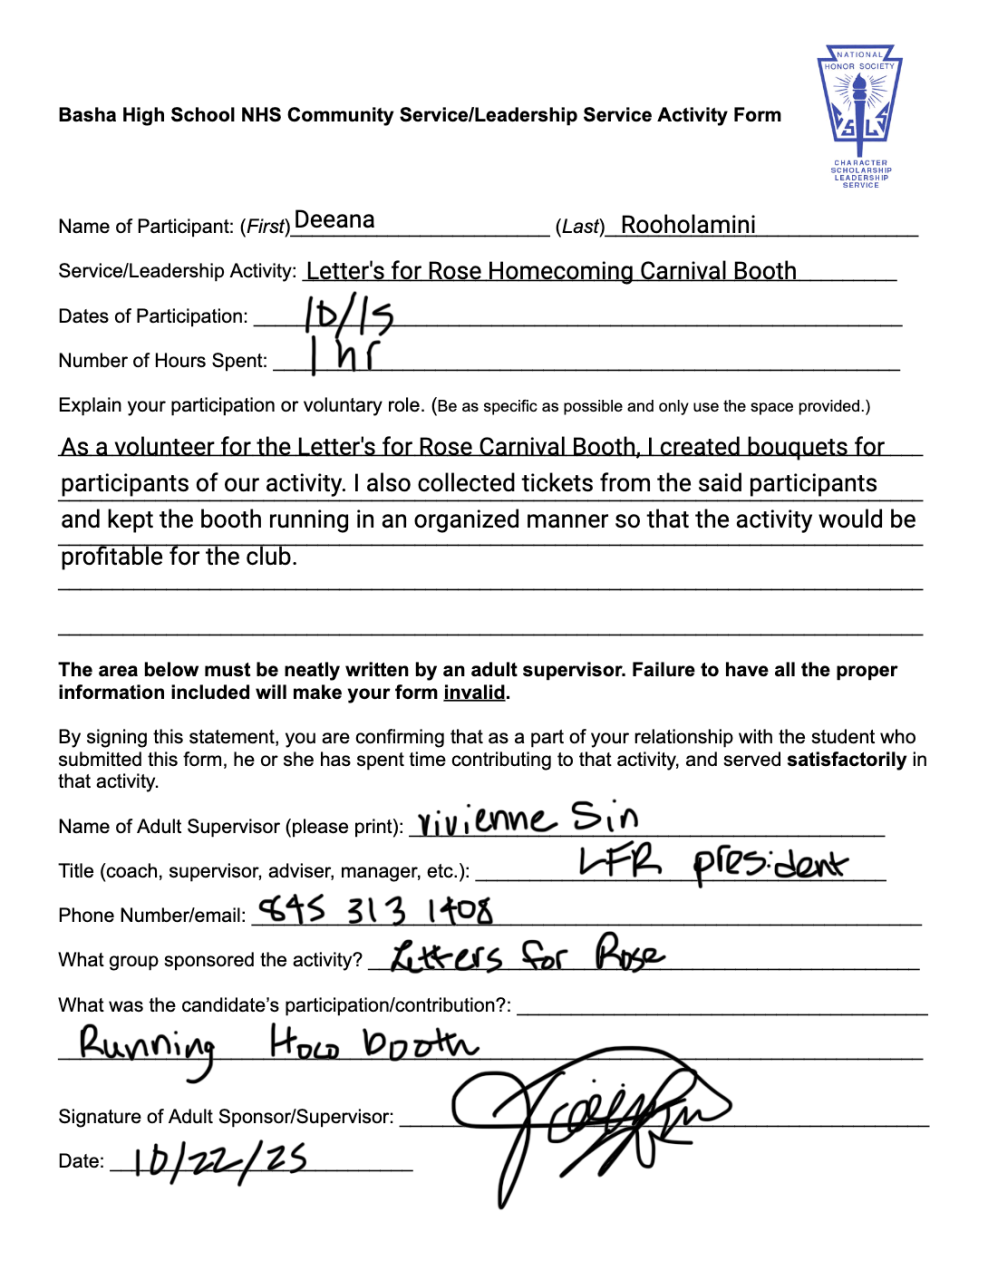 NATIONAL
HONOR SOCIETY
CHARACTER
SCHOLARSHIP
LEADERSHIP
SERVICE
Basha High School NHS Community Service/Leadership Service Activity Form
Name of Participant: (First) Deeana (Last) Rooholamini
Service/Leadership Activity: Letter's for Rose Homecoming Carnival Booth
Dates of Participation: 10/15
Number of Hours Spent: 1 hr
Explain your participation or voluntary role. (Be as specific as possible and only use the space provided.)
As a volunteer for the Letter's for Rose Carnival Booth, I created bouquets for
participants of our activity. I also collected tickets from the said participants
and kept the booth running in an organized manner so that the activity would be
profitable for the club.
The area below must be neatly written by an adult supervisor. Failure to have all the proper
information included will make your form invalid.
By signing this statement, you are confirming that as a part of your relationship with the student who
submitted this form, he or she has spent time contributing to that activity, and served satisfactorily in
that activity.
Name of Adult Supervisor (please print): Vivienne Sin
Title (coach, supervisor, adviser, manager, etc.): LFR president
Phone Number/email: 845 313 1408
What group sponsored the activity? Letters for Rose
What was the candidate's participation/contribution?:
Running Hoco booth
Signature of Adult Sponsor/Supervisor:
Date: 10/22/25